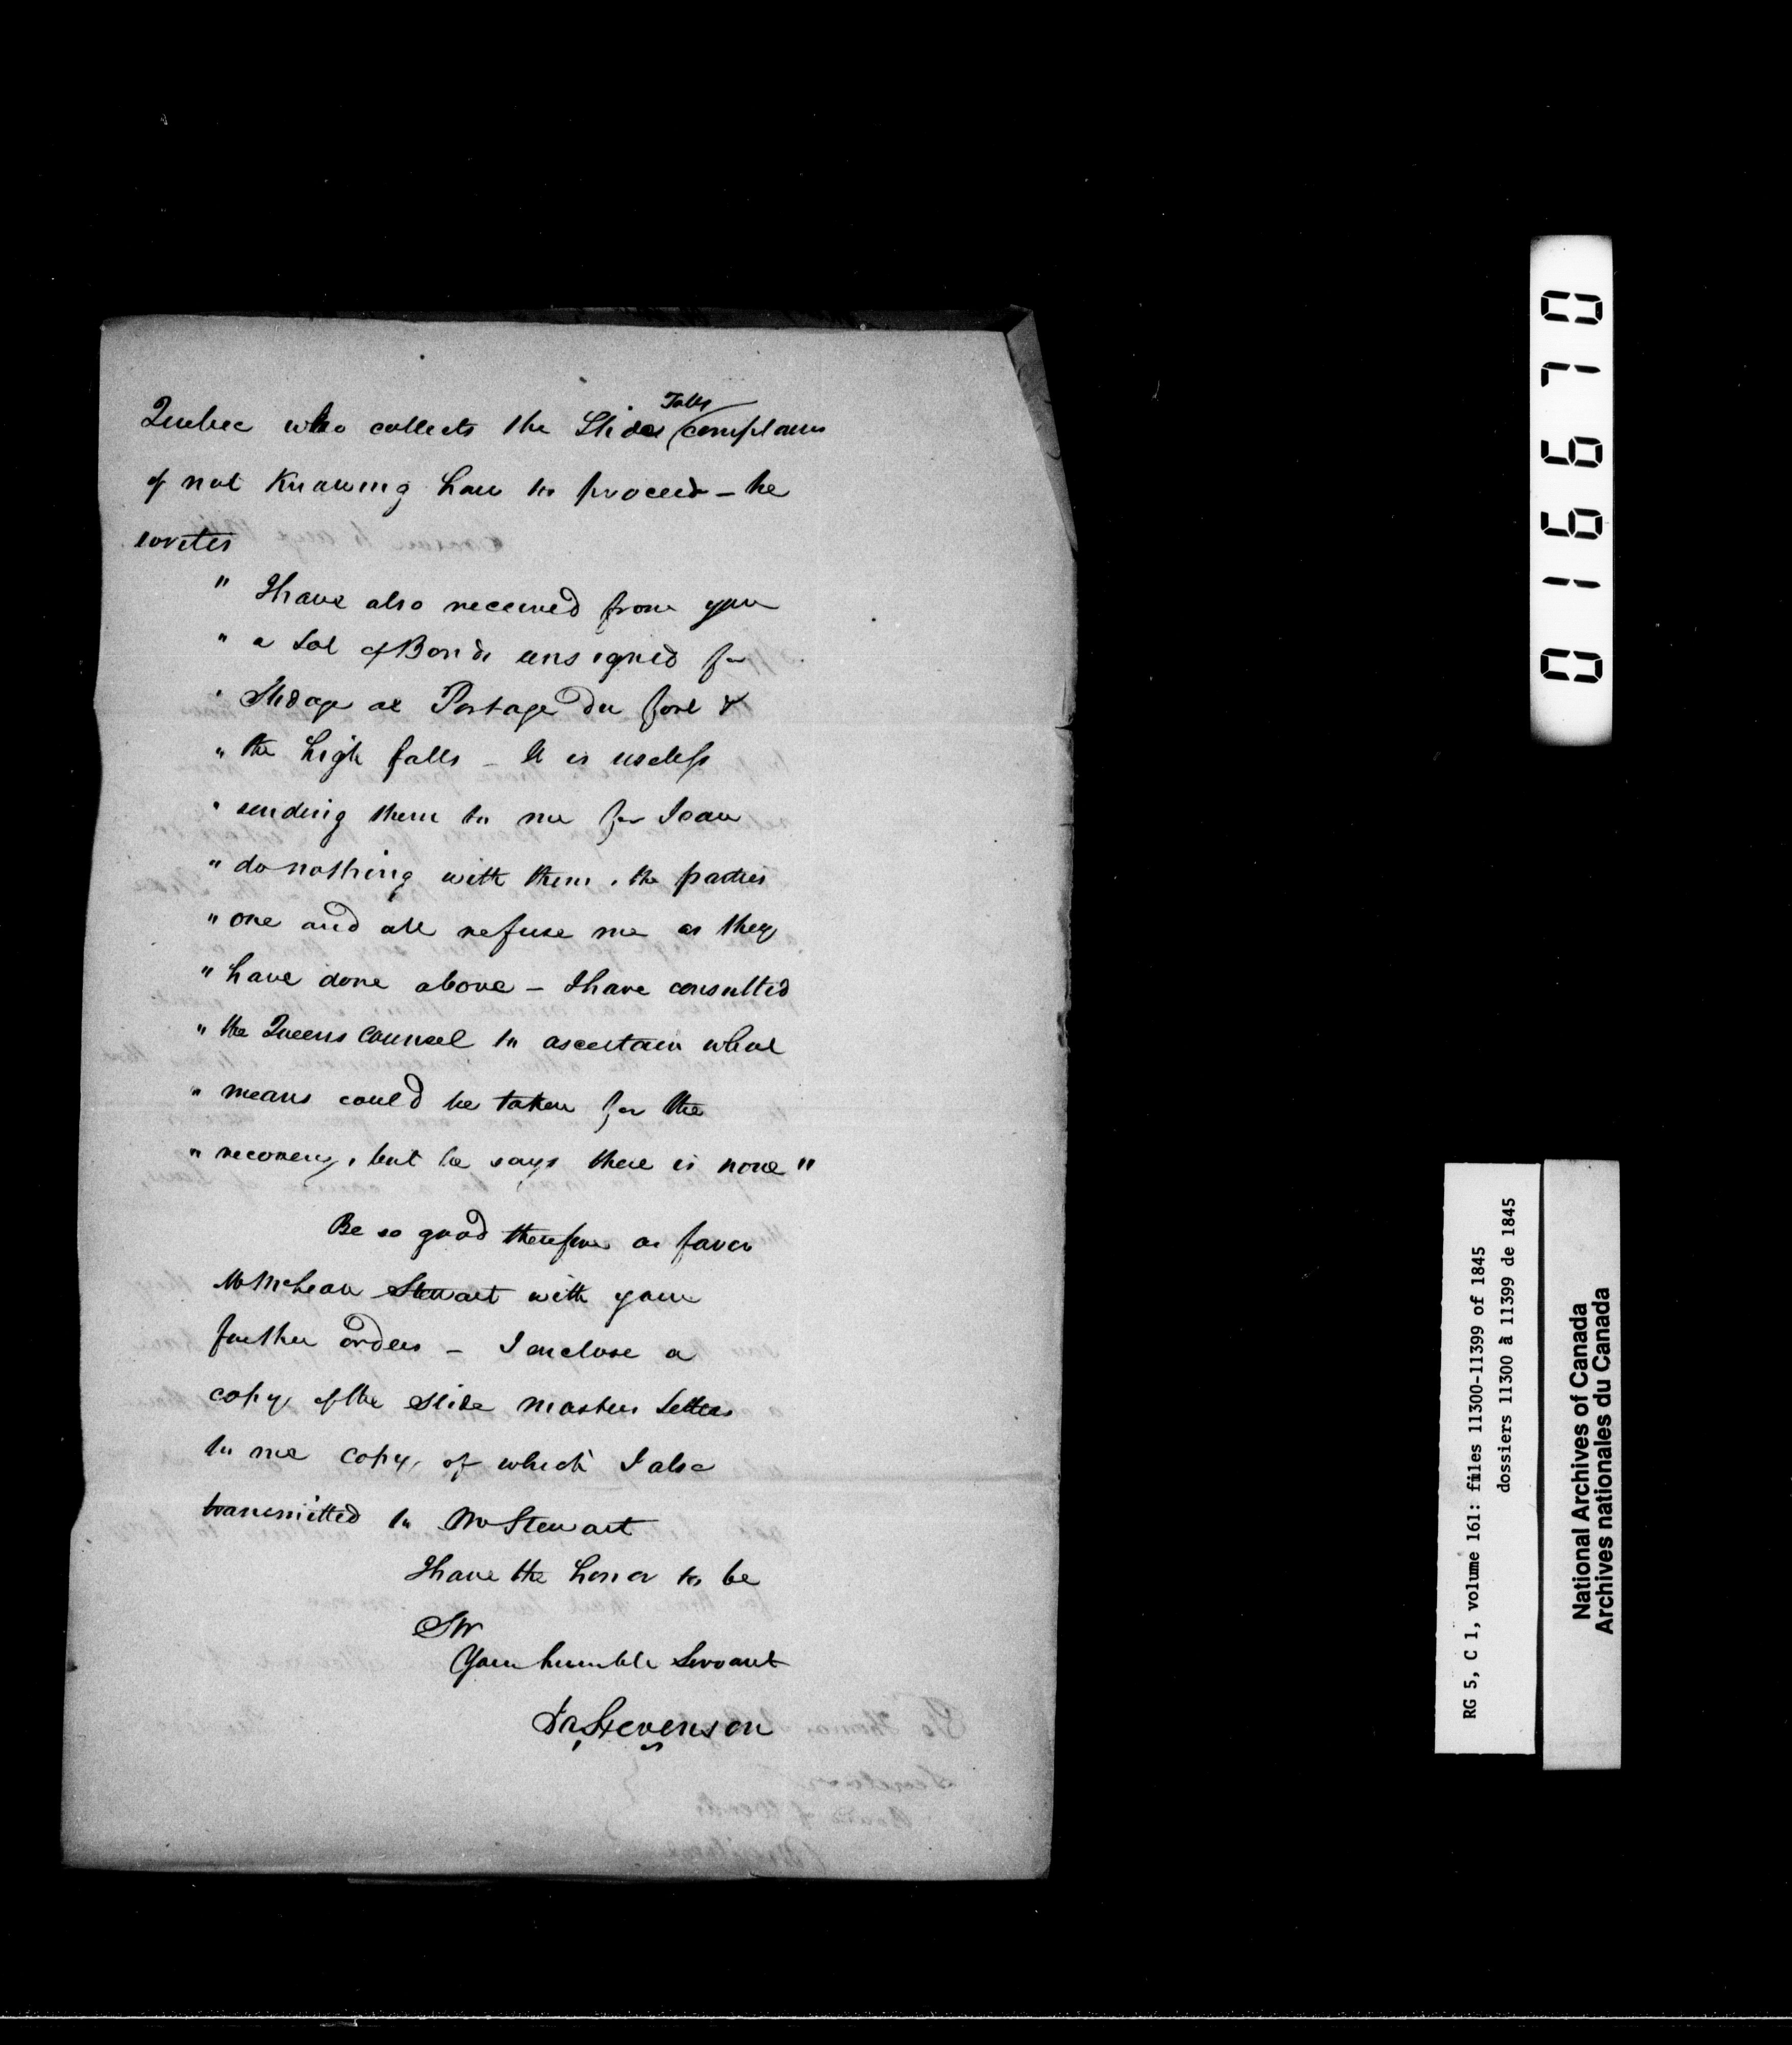 Quebec who collects the Slides Tolls complains
of not Knowing how to proceed – he
writes
" I have also received from you
" a Sot of Bonds unsigned for
" Slidage at Portage du fort &
" the high falls – It is useless
" sending them to me for I can
" do nothing with them, the parties
" one and all refuse me as they
" have done above – I have consulted
" the Queens Counsel to ascertain what
" means could be taken for the
" recovery, but he says there is none "
Be so good therefore as favor
Mr McLean Stewart with your
further orders – I enclose a
copy of the Slide Masters Letters
to me copy, of which I also
transmitted to Mr Stewart
I have the honor to be
Sir
Your humble Servant
Ja Stevenson
016670
RG 5, C 1, volume 161: files 11300-11399 of 1845
dossiers 11300 à 11399 de 1845
National Archives of Canada
Archives nationales du Canada